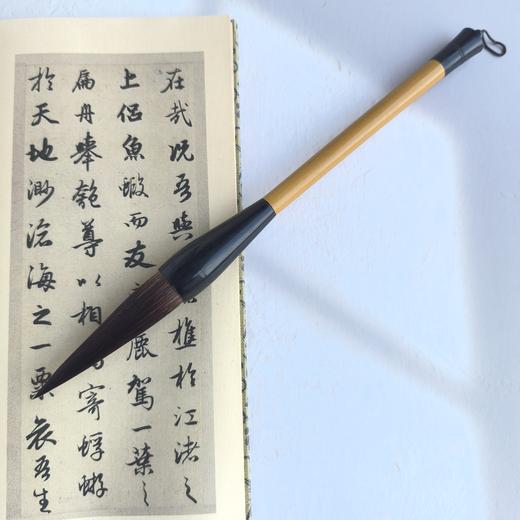 在哉況吾與樵於江渚之
上侶魚蝦而友鹿駕一葉之
扁舟舉匏尊以相寄蜉蝣
於天地渺滄海之一粟哀吾生